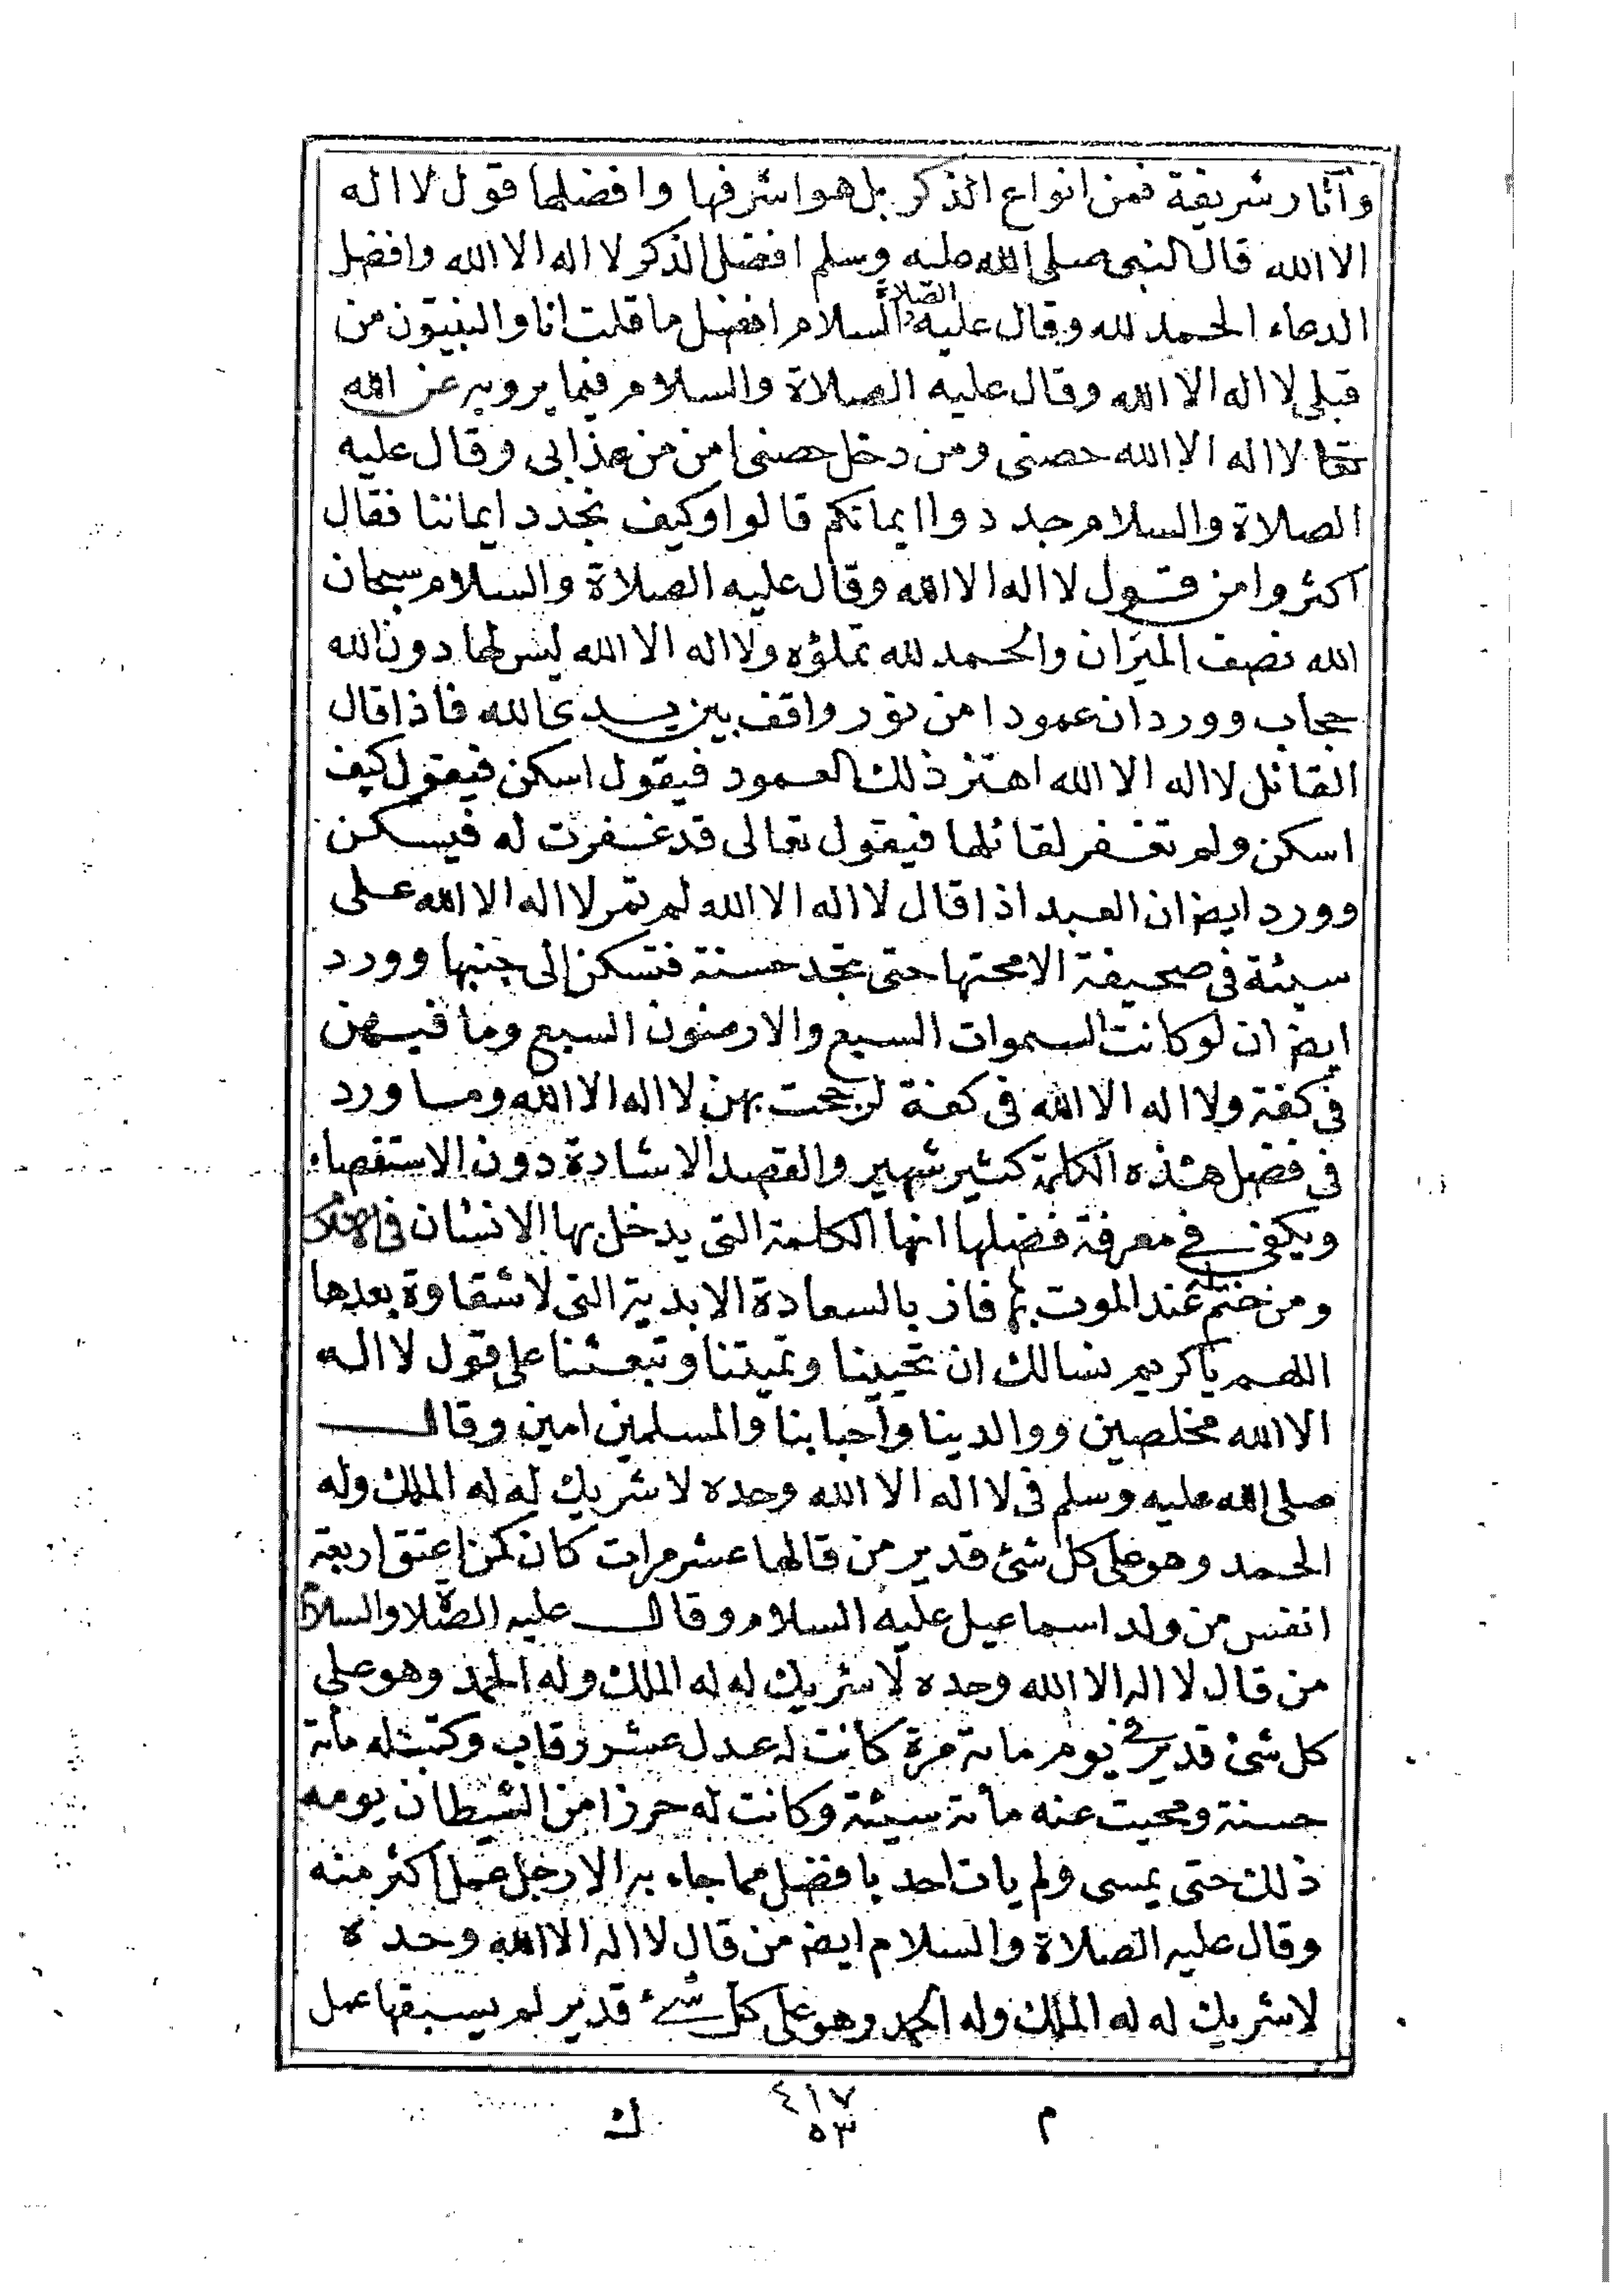 وآثار شريفة فمن انواع الذكر بل هو اشرفها وافضلها قول لا اله
الا الله قال النبي صلى الله عليه وسلم افضل الذكر لا اله الا الله وافضل
الدعاء الحمد لله وقال عليه الصلاة والسلام افضل ما قلت انا والنبيون من
قبلي لا اله الا الله وقال عليه الصلاة والسلام فيما يرويه عن الله
تعا لا اله الا الله حصنى ومن دخل حصنى امن من عذابى وقال عليه
الصلاة والسلام جددوا ايمانكم قالوا وكيف نجدد ايماننا فقال
اكثروا من قول لا اله الا الله وقال عليه الصلاة والسلام سبحان
الله نصف الميزان والحمد لله تملؤه ولا اله الا الله ليس لها دون الله
حجاب وورد ان عمودا من نور واقف بين يدى الله فاذا قال
القائل لا اله الا الله اهتز ذلك العمود فيقول اسكن فيقول كيف
اسكن ولم تغفر لقائلها فيقول تعالى قد غفرت له فيسكن
وورد ايض ان العبد اذا قال لا اله الا الله لم تمر لا اله الا الله على
سيئة في صحيفة الا محتها حتى تجد حسنة فتسكن الى جنبها وورد
ايض ان لو كانت السموات السبع والارضون السبع وما فيهن
في كفة ولا اله الا الله في كفة لرجحت بهن لا اله الا الله وما ورد
في فضل هذه الكلمة كثير شهير والقصد الاشارة دون الاستقصاء
ويكفى في معرفة فضلها انها الكلمة التى يدخل بها الانسان في
ومن ختم له عند الموت بها فاز بالسعادة الابدية التى لا شقاوة بعدها
اللهم يا كريم نسالك ان تحيينا وتميتنا وتبعثنا على قول لا اله
الا الله مخلصين ووالدينا وأحبابنا والمسلمين امين وقال
صلى الله عليه وسلم فى لا اله الا الله وحده لا شريك له له الملك وله
الحمد وهو على كل شئ قدير من قالها عشر مرات كان كمن اعتق اربعة
انفس من ولد اسماعيل عليه السلام وقال عليه الصلاة والسلام
من قال لا اله الا الله وحده لا شريك له له الملك وله الحمد وهو على
كل شئ قدير في يوم مائة مرة كانت له عدل عشر رقاب وكتبت له مائة
حسنة ومحيت عنه مائة سيئة وكانت له حرزا من الشيطان يومه
ذلك حتى يمسى ولم يات احد بافضل مما جاء به الا رجل عمل اكثر منه
وقال عليه الصلاة والسلام ايض من قال لا اله الا الله وحده
لا شريك له له الملك وله الحمد وهو على كل شئ قدير لم يسبقها عمل
م ٤١٧ ك
٥٣